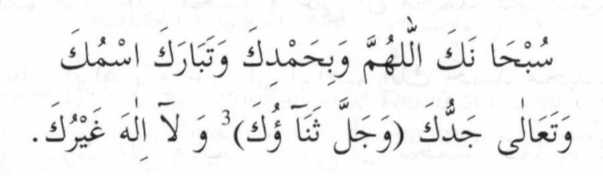 سُبْحَا نَكَ اللّٰهُمَّ وَبِحَمْدِكَ وَتَبَارَكَ اسْمُكَ
وَتَعَالٰى جَدُّكَ (وَجَلَّ ثَنَآ ؤُكَ)³ وَ لَآ اِلٰهَ غَيْرُكَ.